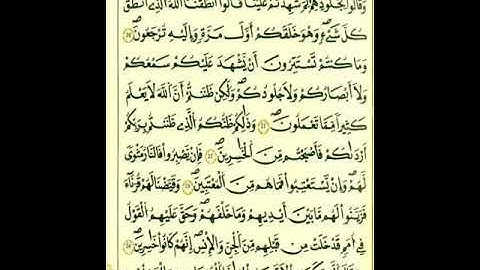 وَقَالُوا۟ لِجُلُودِهِمْ لِمَ شَهِدتُّمْ عَلَيْنَا قَالُوٓا۟ أَنطَقَنَا ٱللَّهُ ٱلَّذِىٓ أَنطَقَ
كُلَّ شَىْءٍ وَهُوَ خَلَقَكُمْ أَوَّلَ مَرَّةٍ وَإِلَيْهِ تُرْجَعُونَ
وَمَا كُنتُمْ تَسْتَتِرُونَ أَنْ يَّشْهَدَ عَلَيْكُمْ سَمْعُكُمْ
وَلَآ أَبْصَٰرُكُمْ وَلَا جُلُودُكُمْ وَلَٰكِن ظَنَنتُمْ أَنَّ ٱللَّهَ لَا يَعْلَمُ
كَثِيرًا مِّمَّا تَعْمَلُونَ وَذَٰلِكُمْ ظَنُّكُمُ ٱلَّذِى ظَنَنتُم بِرَبِّكُمْ
أَرْدَىٰكُمْ فَأَصْبَحْتُم مِّنَ ٱلْخَٰسِرِينَ فَإِنْ يَّصْبِرُوا۟ فَٱلنَّارُ مَثْوًى
لَّهُمْ وَإِنْ يَّسْتَعْتِبُوا۟ فَمَا هُم مِّنَ ٱلْمُعْتَبِينَ وَقَيَّضْنَا لَهُمْ قُرَنَآءَ
فَزَيَّنُوا۟ لَهُم مَّا بَيْنَ أَيْدِيهِمْ وَمَا خَلْفَهُمْ وَحَقَّ عَلَيْهِمُ ٱلْقَوْلُ
فِىٓ أُمَمٍ قَدْ خَلَتْ مِن قَبْلِهِم مِّنَ ٱلْجِنِّ وَٱلْإِنسِ إِنَّهُمْ كَانُوا۟ خَٰسِرِينَ